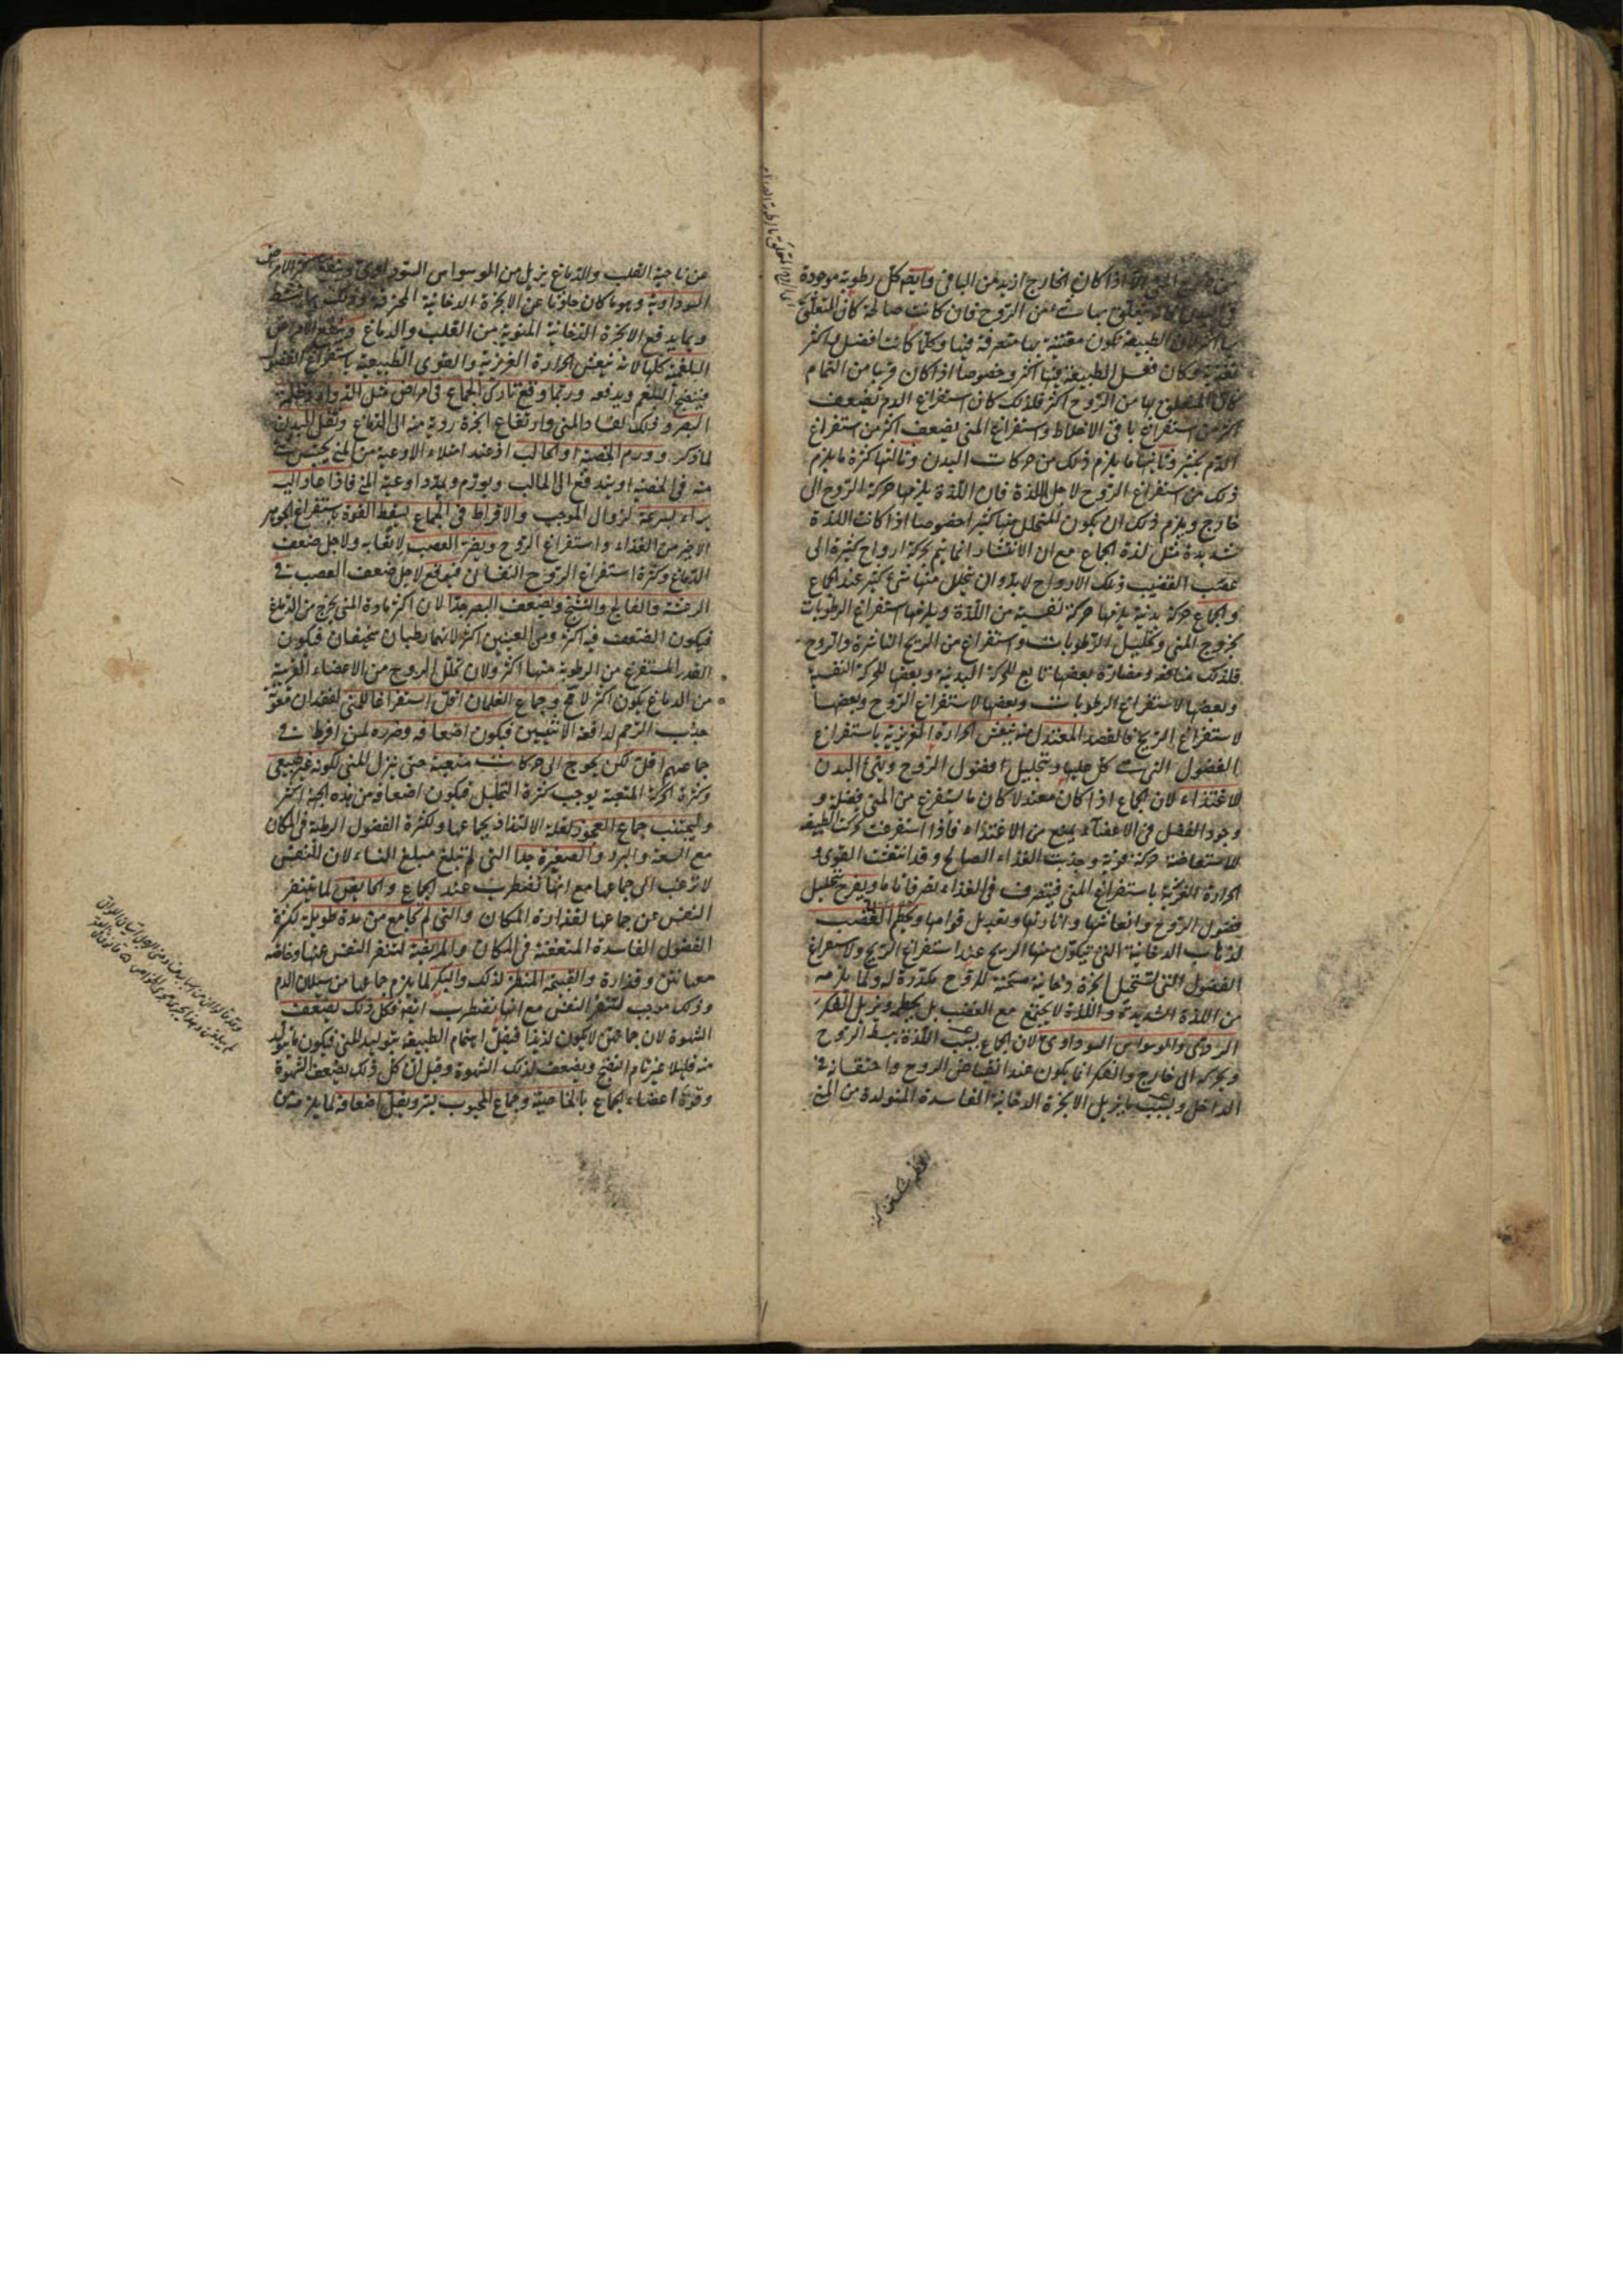 اذا كان الخارج ازيد من الباقى وايضا كل رطوبة موجودة
فى البدن فانه يتعلق بها شئ من الروح فان كانت صالحة كان المتعلق
بها اكثر لان الطبيعة تكون معتنية بها متصرفة فيها وكلما كانت افضل واكثر
تغذية كان فعل الطبيعة فيها اكثر وخصوصا اذا كان قربها من التمام
كان المتعلق بها من الروح اكثر فلذلك كان استفراغ الدم يضعف
اكثر من استفراغ باقى الاخلاط واستفراغ المنى يضعف اكثر من استفراغ
الدم بكثير وثانيها ما يلزم ذلك من حركات البدن وثالثها كثرة ما يلزم
ذلك من استفراغ الروح لاجل اللذة فان اللذة يلزمها حركة الروح الى
خارج ويلزم ذلك ان يكون المتحلل منها كثيرا خصوصا اذا كانت اللذة
شديدة مثل لذة الجماع مع ان الانتشار انما يتم بحركة ارواح كثيرة الى
عصب القضيب وتلك الارواح لابد وان يتحلل منها شئ كثير عند الجماع
والجماع حركة بدنية يلزمها حركة نفسية من اللذة ويلزمها استفراغ الرطوبات
بخروج المنى وتحليل الرطوبات واستفراغ من الريح الناشرة والروح
فلذلك منافعه ومضاره بعضها تابع للحركة البدنية وبعضها للحركة النفسية
وبعضها لاستفراغ الرطوبات وبعضها لاستفراغ الروح وبعضها
لاستفراغ الريح فالقصد المعتدل منه ينعش الحرارة الغريزية باستفراغ
الفضول التى هى كل عليها وتحليل فضول الروح ويهيئ البدن
للاغتذاء لان الجماع اذا كان معتدلا كان ما يستفرغ من المنى فضلة و
وجود الفضل فى الاعضاء يمنع من الاغتذاء فاذا استفرغت تحركت الطبيعة
للاستعاضة حركة قوية وجذبت الغذاء الصالح وقد انتعشت القوى و
الحرارة الغريزية باستفراغ المنى فيتصرف فى الغذاء تصرفا تاما ويفرح بتحليل
فضول الروح وانعاشها وانارتها وتعديل قوامها ويحطم الغضب
لذهاب الدخانية التى تتكون منها الريح عند استفراغ الريح ولاستفراغ
الفضول التى تستحيل ابخرة دخانية مسخنة للروح مكدرة له ولما يلزمه
من اللذة الشديدة واللذة لا تجتمع مع الغضب بل يحطمه ويزيل الفكر
الردى والوسواس السوداوى لان الجماع بسبب اللذة يبسط الروح
ويحركه الى خارج والفكر انما يكون عند انقباض الروح واحتقانه فى
الداخل وبسبب ما يزيل الابخرة الدخانية الفاسدة المتولدة من المنى
عن ناحية القلب والدماغ يزيل من الوسواس السوداوى وينفع اكثر الامراض
السوداوية وهو ما كان حادثا عن الابخرة الدخانية المحترقة وذلك بما ينشط
وبما يدفع الابخرة الدخانية المنوية من القلب والدماغ وينفع الامراض
البلغمية كلها لانه ينعش الحرارة الغريزية والقوى الطبيعية باستفراغ الفضول
فينضج البلغم ويدفعه وربما وقع تارك الجماع فى امراض مثل الدوار وظلمة
البصر وذلك لفساد المنى وارتفاع ابخرة ردية منه الى الدماغ وثقل البدن
لما ذكر وورم الخصية او الحالب اذ عند امتلاء الاوعية من المنى يحتبس شئ
منه فى الخصية او يندفع الى الحالب ويورم ويمدد اوعية المنى فاذا عاد اليه
براء بسرعة لزوال الموجب والافراط فى الجماع يسقط القوة باستفراغ الجوهر
الاخير من الغذاء واستفراغ الروح ويضر العصب لاتعابه ولاجل ضعف
الدماغ وكثرة استفراغ الروح النفسانى فيوقع لاجل ضعف العصب فى
الرعشة والفالج والتشنج ويضعف البصر جدا لان اكثر مادة المنى يخرج من الدماغ
فيكون الضعف فيه اكثر ومن العينين اكثر لانهما رطبان سخيفان فيكون
القدر المستفرغ من الرطوبة منهما اكثر ولان تحلل الروح من الاعضاء القريبة
من الدماغ يكون اكثر لا محالة وجماع الغلمان اقل استفراغا للمنى لفقدان معونة
جذب الرحم لدافعة الانثيين فيكون اضعافه وضرره لمن افرط فى
جماعهم اقل لكن يحوج الى حركات متعبة حتى ينزل المنى لكونه غير طبيعى
وكثرة الحركة المتعبة يوجب كثرة التحليل فيكون اضعافه من هذه الجهة اكثر
وليجتنب جماع العجوز لقلة الالتذاذ بجماعها ولكثرة الفضول الرطبة فى المكان
مع السعة والبرد والصغيرة جدا التى لم تبلغ مبلغ النساء لان النفس
لا ترغب الى جماعها مع انها تضطرب عند الجماع والحايض لما يتنفر
النفس عن جماعها لقذارة المكان والتى لم تجامع من مدة طويلة لكثرة
الفضول الفاسدة المتعفنة فى المكان والمريضة لتنفر النفس عنها وخاصة
معها نتن وقذارة والقبيحة المنظر لذلك والبكر لما يلزم جماعها من سيلان الدم
وذلك موجب لتنفر النفس مع انها تضطرب انفة فكل ذلك يضعف
الشهوة لان جماعهن لا يكون لذيذا فيقل اهتمام الطبيعة بتوليد المنى فيكون ما يتولد
منه قليلا غير تام النضج ويضعف لذلك الشهوة وقيل ان كل ذلك يضعف الشهوة
وقوة اعضاء الجماع بالخاصية وجماع المحبوب يسر ويقل اضعافه لما يلزمه من